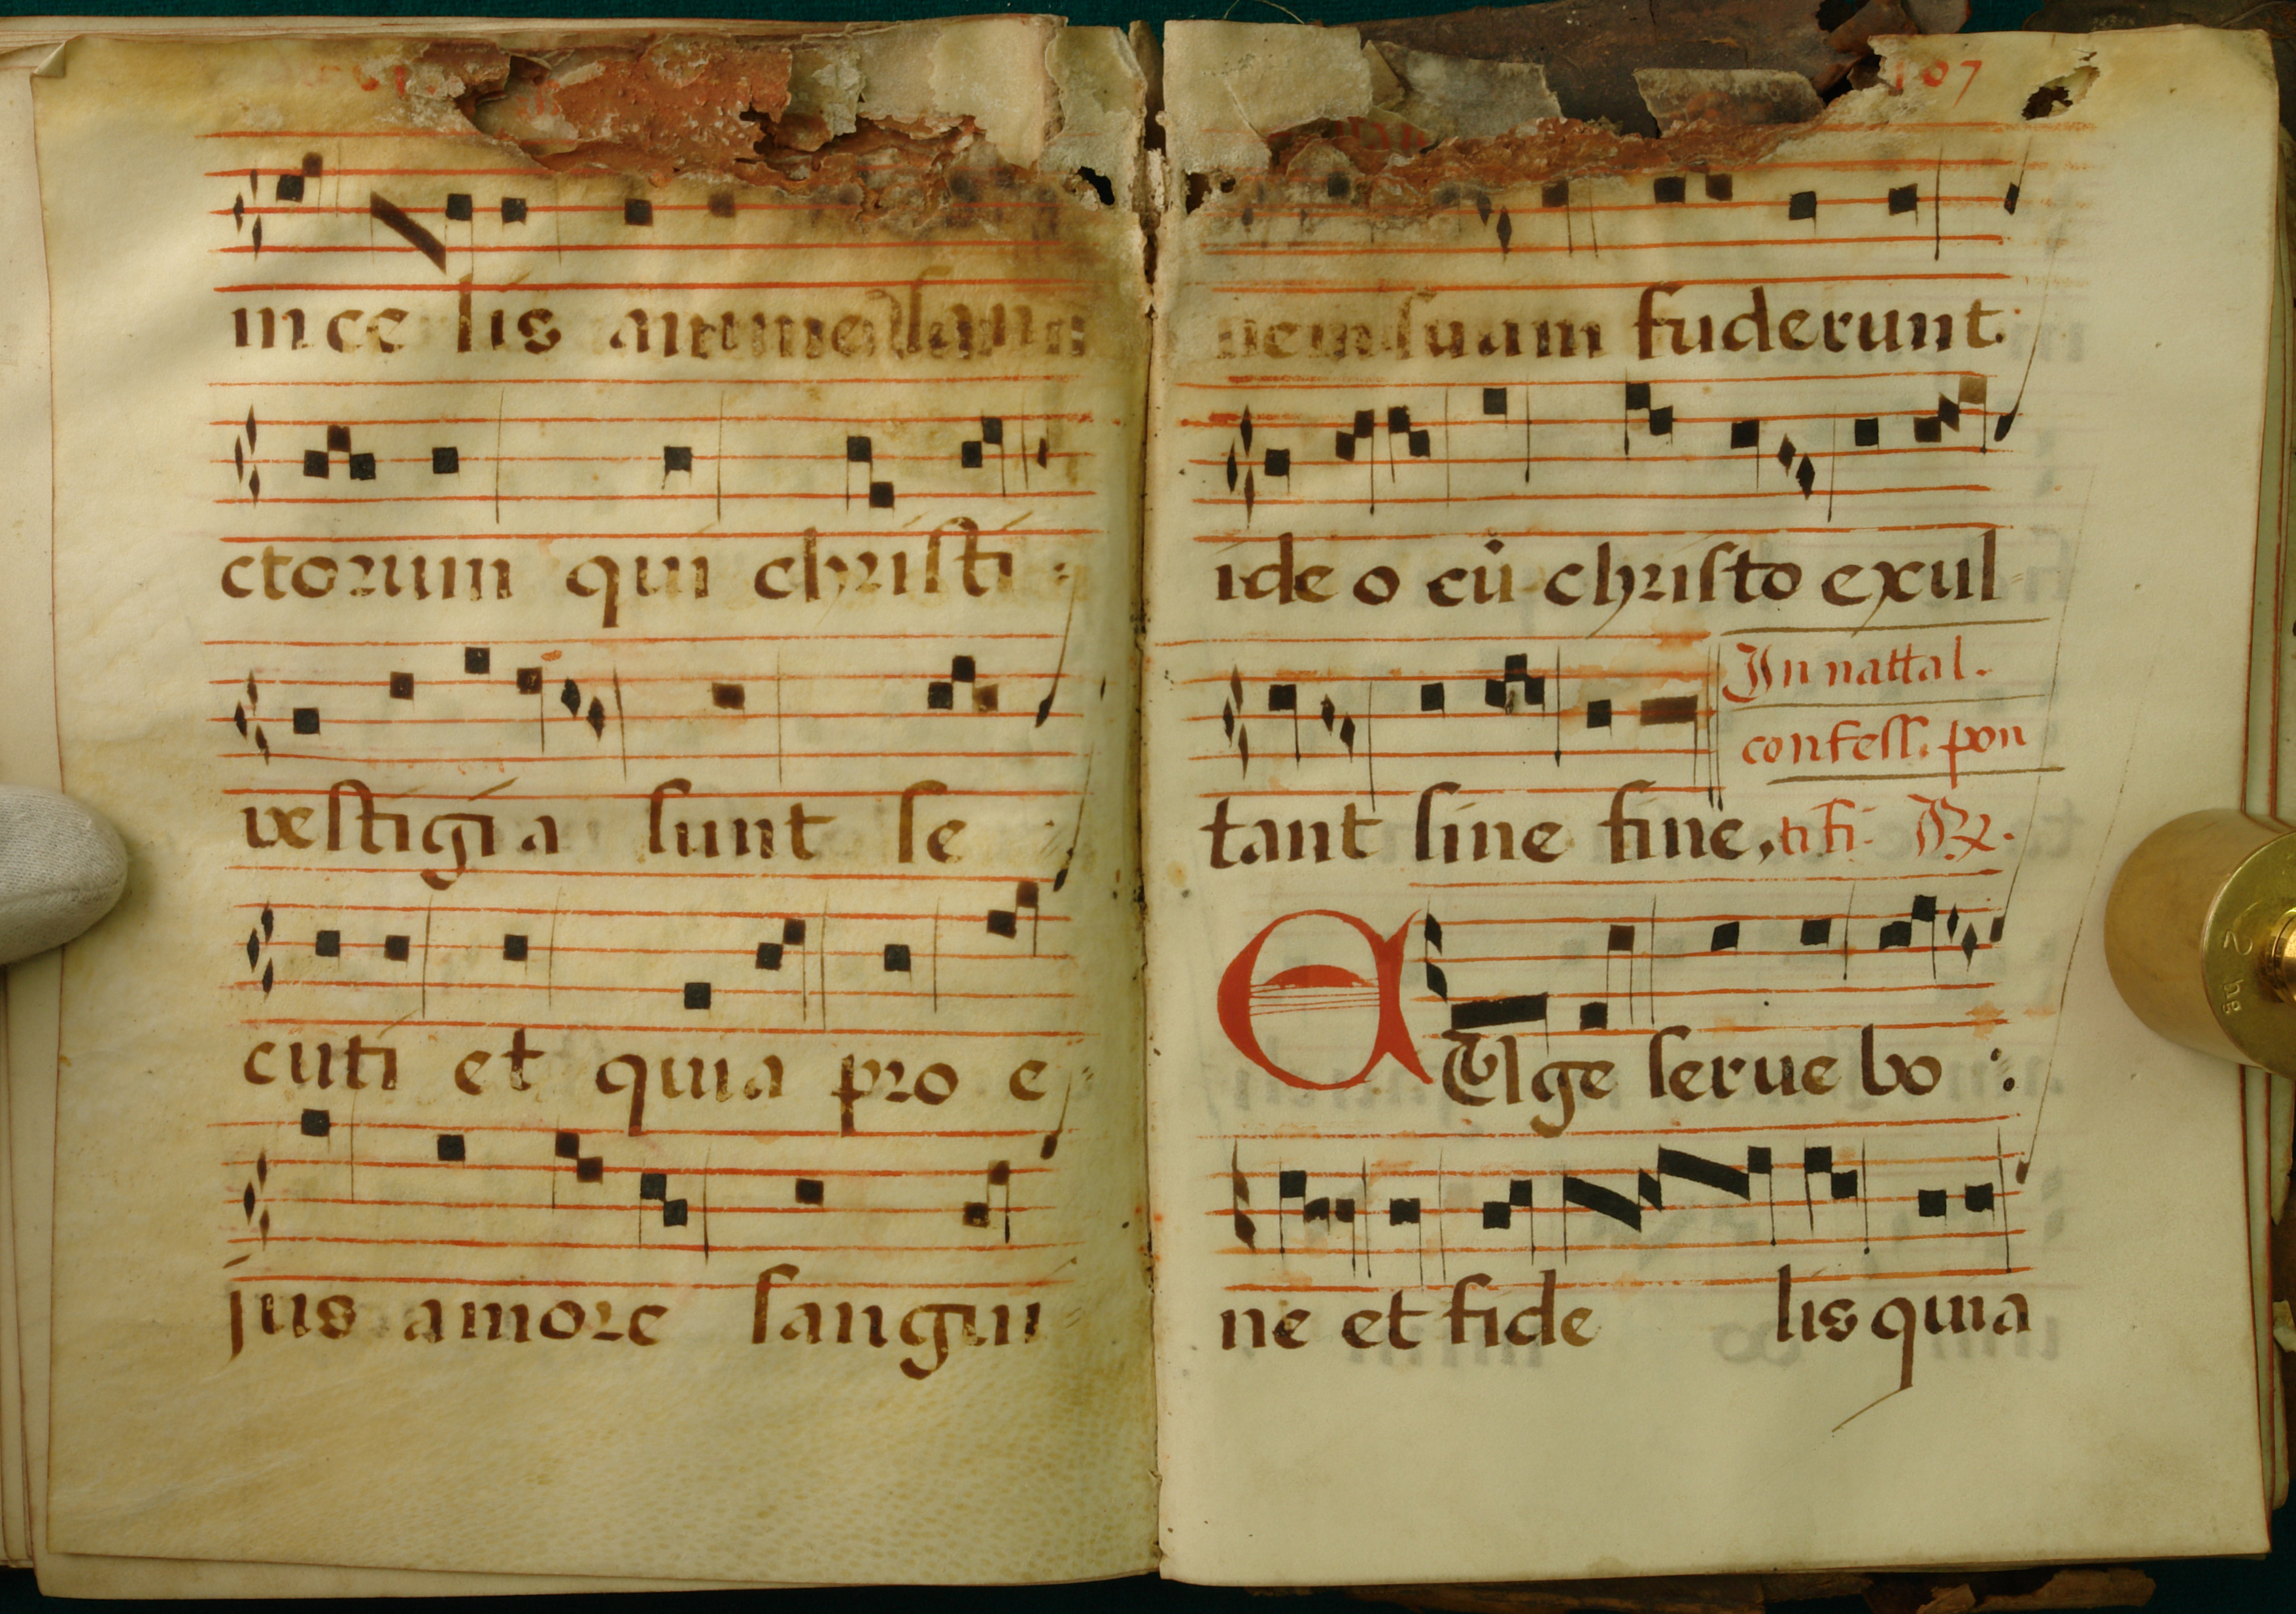 in ce lis anime san
ctorum qui christi
vestigia sunt se
cuti et quia pro e
jus amore sangui
107
nem suam fuderunt
ideo cũ christo exul
tant sine fine, tifi. ℟.
In nattal.
confess. pon
EUge serue bo
ne et fide lis quia